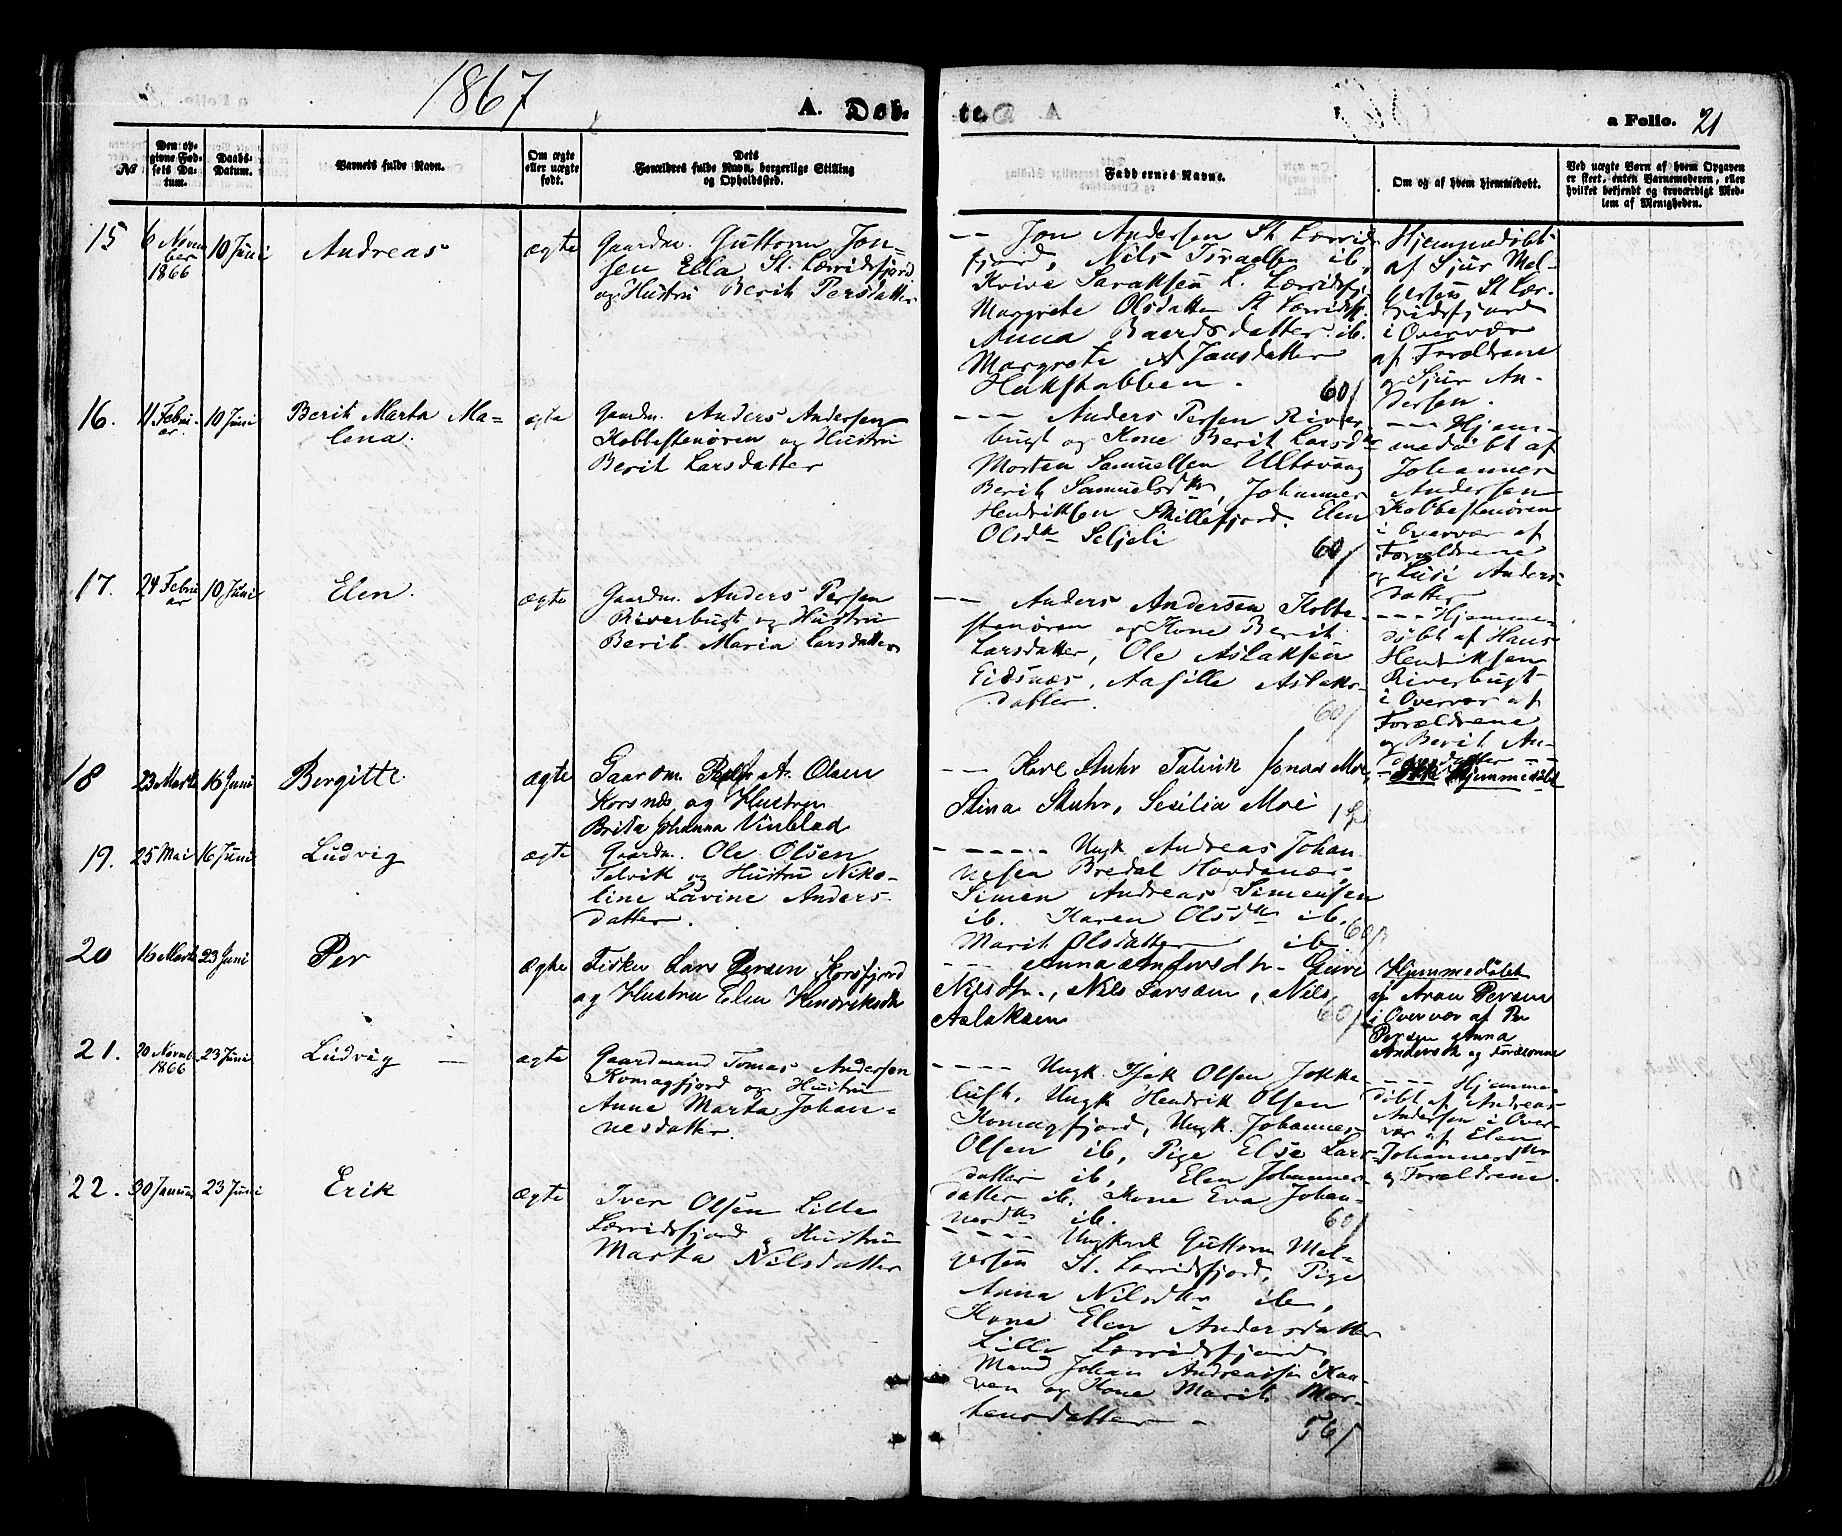 1867
A. Døb-
te.
a Folio. 21
№
Den op-
givne Fød-
sels Da-
tum.
Daabs-
Datum.
Barnets fulde Navn.
Om ægte
eller uægte
født.
Dets
Forældres fulde Navn, borgerlige Stilling
og Opholdssted.
Faddernes Navne.
Om og af hvem hjemmedøbt.
Ved uægte Børn af hvem Opgaven
er skeet, enten Barnemoderen, eller
hvilket bekjendt og troværdigt Med-
lem af Menigheden.
15
6 Novem
ber
1866
10 Juni
Andreas
ægte
Gaardm. Guttorm Jon-
sen Ella St. Lerridsfjord
og Hustru Berit Persdatter
-- Jon Andersen St Lerrids
fjord, Nils Israelsen ib,
Saraksen L. Lerridsfj.
Margrete Olsdatter St Lerridsfj.
Anna Baardsdatter ib.
Margrete A Jansdatter
Hakstabben.
60/
Hjemmedøbt
af Sjur Mel-
gersen St Ler-
ridsfjord
i Overvær
af Forældrene
og Sjur An-
dersen.
16.
11 Febru-
ar.
10 Juni
Berit Marta Ma-
lena.
ægte
Gaardm. Anders Andersen
Kobbestenøren og Hustru
Berit Larsdatter
--- Anders Persen River
bugt og Kone Berit Larsdtr
Morten Samuelsen Ultsvaag
Berit Samuelsdtr, Johannes
Hendriksen Skillefjord. Elen
Olsdtr Seljeli
60/
--- Hjem-
medøbt af
Johannes
Andersen
Kobbestenøren
i Overvær af
Forældrene
og Lusi Anders-
datter
17.
24 Febru
ar
10 Juni
Elen.
ægte
Gaardm. Anders Persen
Riverbugt og Hustru
Berit Maria Larsdatter
-- Anders Andersen Kobbe
stenøren og Kone Berit
Larsdatter, Ole Aslaksen
Eidsnæs, Aslaks-
datter.
60/
--- Hjemme-
døbt af Hans
Hendriksen
Riverbugt
i Overvær af
Forældrene
og Berit An-
dersdatter
18
23 Marts
16 Juni
Bergitte
ægte
Gaardm. A. Olsen
Korsnes og Hustru
Brita Johanna Vinblad
-- Karl Stuhr Talvik Jonas Moe,
Stina Stuhr, Sesilia Moe
Ikke Hjemmedøbt
19.
25 Mai
16 Juni
Ludvig
ægte
Gaardm. Ole Olsen
Talvik og Hustru Niko-
line Lovine Anders-
datter.
----- Ungk Andreas Johan
nesen Bredal
Simon Andreas Simensen
ib. Karen Olsdtr ib.
Marit Olsdatter ib
60/
20
16 Marts
23 Juni
Per
Ægte
Fisker Lars Persen Korsfjord
og Hustru Elen Hendriksdtr
--- Anna Andersdtr-
Nilsdtr., Nils Larsen, Nils
Aslaksen
60/
Hjemmedøbt
af Aron Persen
i Overvær af Per
Persen Anna
Andersdtr og Forældrene
21.
20 Novmb
1866
23 Juni
Ludvig
ægte
Gaardmand Tomas Andersen
Komagfjord og Hustru
Anne Marta Johan-
nesdatter.
---- Ungk. Isak Olsen Jokke
luft. Ungk Hendrik Olsen
Komagfjord, Ungk. Johannes
Olsen ib, Pige Else Lars-
datter ib, Elen Johannes-
datter ib. Kone Eva Johan-
nesdtr ib.
60/
---- Hjemme-
døbt af Andreas
Andersen i Over-
vær af Elen
Johannesdtr
og Forældrene.
22.
30 Januar
23 Juni
Erik
ægte
Iver Olsen Lille
Lerridsfjord og Hustru
Marta Nilsdatter
----- Ungkarl Guttorm Mel-
gersen St. Lerridsfjord, Pige
Anna Nilsdtr ib,
Kone Elen Andersdatter
Lille Lerridsfjord,
Mand Johan Andreassen Kaa-
ven og Kone Marit Mor-
tensdatter -
56/